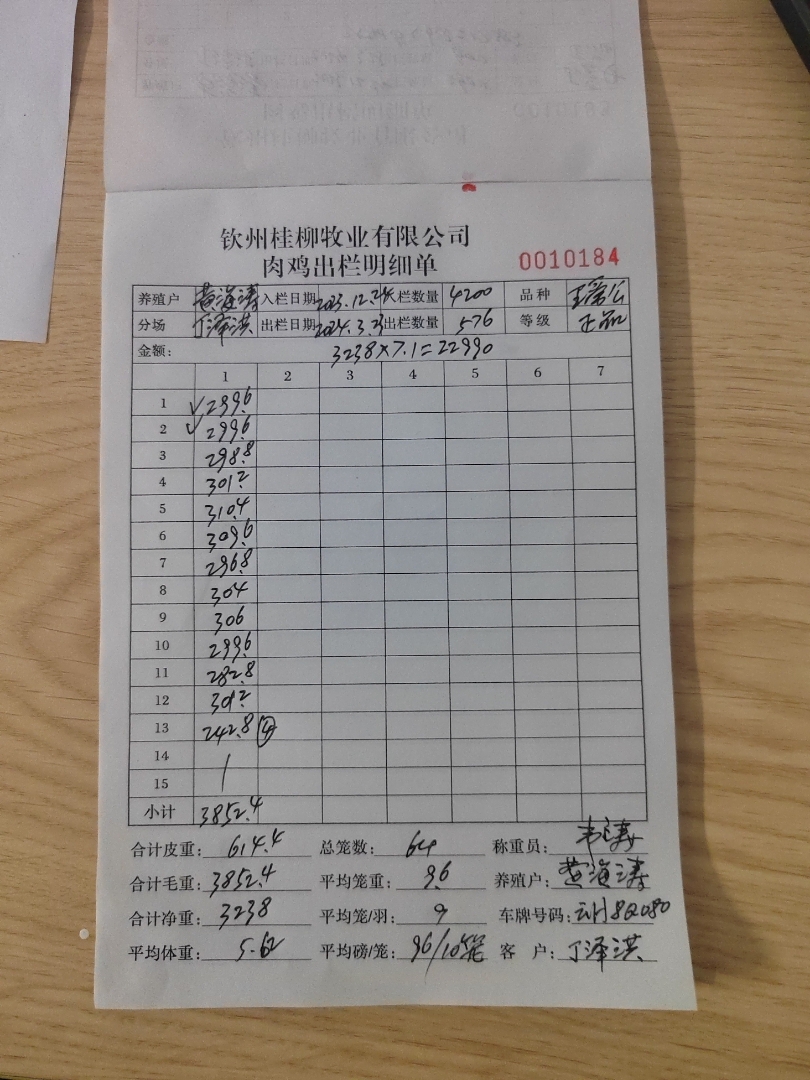 钦州桂柳牧业有限公司
肉鸡出栏明细单
0010184
养殖户 黄海涛 入栏日期 2023.12.24 入栏数量 4200 品种
分场 丁泽洪 出栏日期 2024.3.23 出栏数量 576 等级 正品
金额: 3238×7.1=22990
1 2 3 4 5 6 7
1 √299.6
2 √299.6
3 298.8
4 301.2
5 310.4
6 309.6
7 296.8
8 304
9 306
10 299.6
11 282.8
12 301.2
13 242.8 ④
14
15
小计 3852.4
合计皮重: 614.4 总笼数: 64 称重员: 韦涛
合计毛重: 3852.4 平均笼重: 9.6 养殖户: 黄海涛
合计净重: 3238 平均笼/羽: 9 车牌号码:
平均体重: 5.62 平均磅/笼: 客 户: 丁泽洪